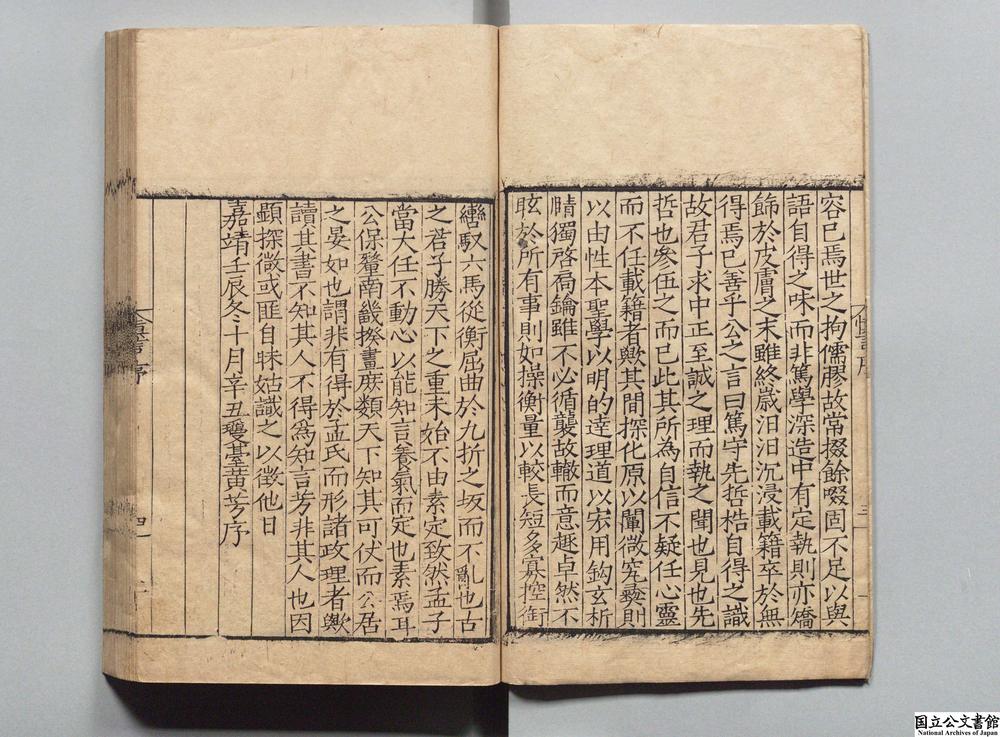 容已焉世之拘儒膠故常掇餘啜固不足以與
語自得之味而非篤學深造中有定執則亦矯
飾於皮膚之末雖終歲汨汨沉浸載籍卒於無
得焉已善乎公之言曰篤守先哲梏自得之識
故君子求中正至誠之理而執之聞也見也先
哲也參伍之而已此其所為自信不疑任心靈
而不任載籍者歟其間探化原以闡微究變則
以由性本聖學以明的達理道以宏用鈎玄析
睛獨啓扃鑰雖不必循襲故轍而意趣卓然不
眩於所有事則如操衡量以較長短多寡控銜
轡馭六馬從衡屈曲於九折之坂而不亂也古
之君子勝天下之重未始不由素定致然孟子
當大任不動心以能知言養氣而定也素焉耳
公保釐南畿揆畫庶類天下知其可仗而公居
之晏如也謂非有得於孟氏而形諸政理者歟
讀其書不知其人不得為知言芳非其人也因
顯探微或匪自昧姑識之以徵他日
嘉靖壬辰冬十月辛丑瓊臺黃芳序
四
国立公文書館
National Archives of Japan